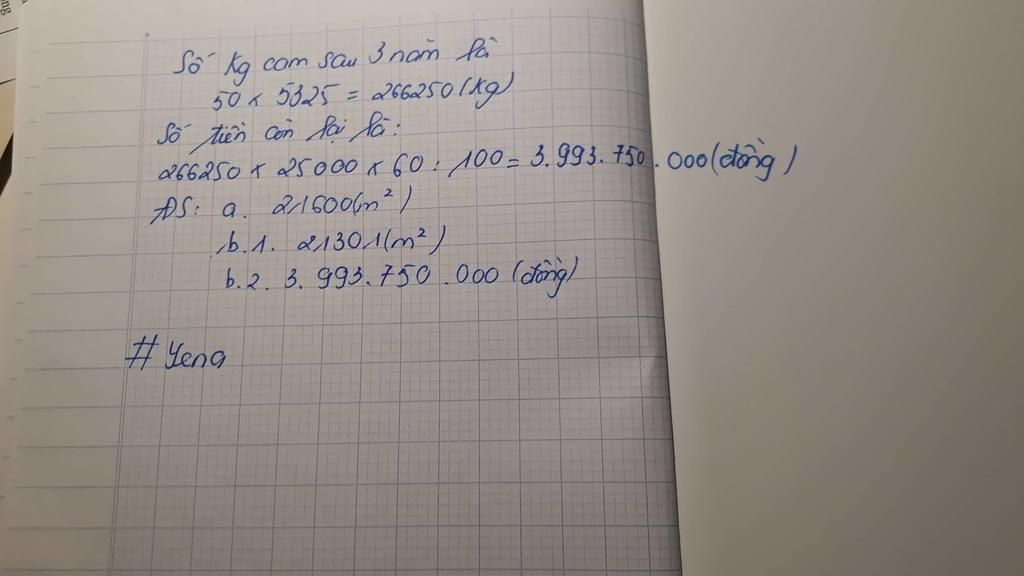 Số kg cam sau 3 năm là
50 x 5325 = 266250 (kg)
Số tiền còn lại là:
266250 x 25000 x 60 : 100 = 3.993.750.000 (đồng)
ĐS: a. 21600 (m²)
b.1. 21301 (m²)
b.2. 3.993.750.000 (đồng)
# Yena